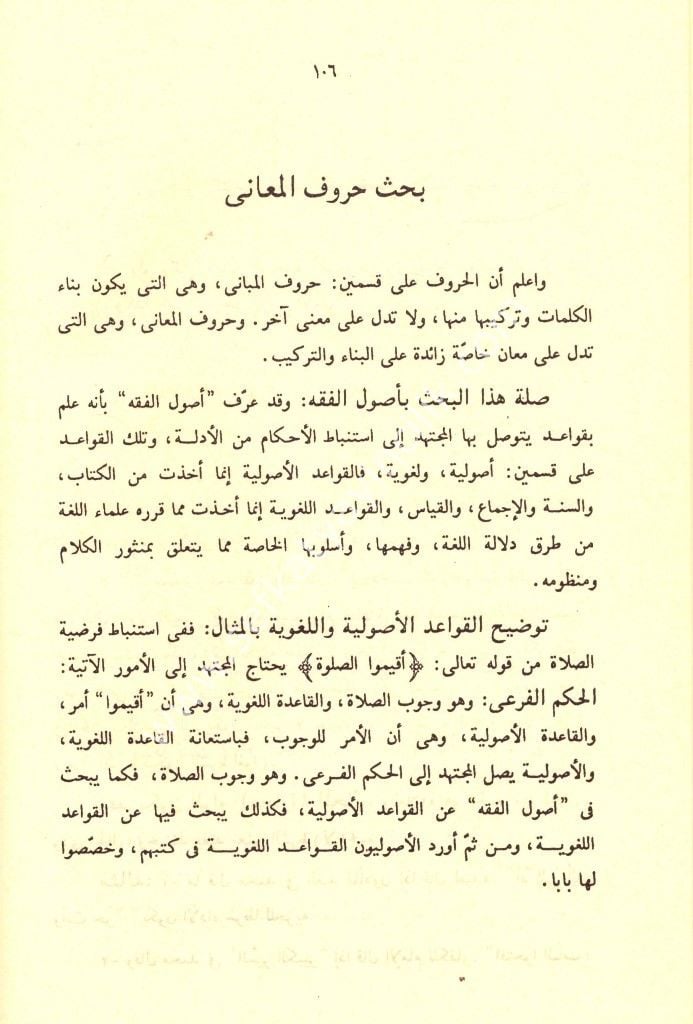 ١٠٦
بحث حروف المعانى
واعلم أن الحروف على قسمين: حروف المبانى، وهى التى يكون بناء
الكلمات وتركيبها منها، ولا تدل على معنى آخر. وحروف المعانى، وهى التى
تدل على معان خاصّة زائدة على البناء والتركيب.
صلة هذا البحث بأصول الفقه: وقد عرّف "أصول الفقه" بأنه علم
بقواعد يتوصل بها المجتهد إلى استنباط الأحكام من الأدلة، وتلك القواعد
على قسمين: أصولية، ولغوية، فالقواعد الأصولية إنما أخذت من الكتاب،
والسنة والإجماع، والقياس، والقواعد اللغوية إنما أخذت مما قرره علماء اللغة
من طرق دلالة اللغة، وفهمها، وأسلوبها الخاصة مما يتعلق بمنثور الكلام
ومنظومه.
توضيح القواعد الأصولية واللغوية بالمثال: ففى استنباط فرضية
الصلاة من قوله تعالى: ﴿أقيموا الصلوة﴾ يحتاج المجتهد إلى الأمور الآتية:
الحكم الفرعى: وهو وجوب الصلاة، والقاعدة اللغوية، وهى أن "أقيموا" أمر،
والقاعدة الأصولية، وهى أن الأمر للوجوب، فباستعانة القاعدة اللغوية،
والأصولية يصل المجتهد إلى الحكم الفرعى. وهو وجوب الصلاة، فكما يبحث
فى "أصول الفقه" عن القواعد الأصولية، فكذلك يبحث فيها عن القواعد
اللغوية، ومن ثمّ أورد الأصوليون القواعد اللغوية فى كتبهم، وخصّصوا
لها بابا.